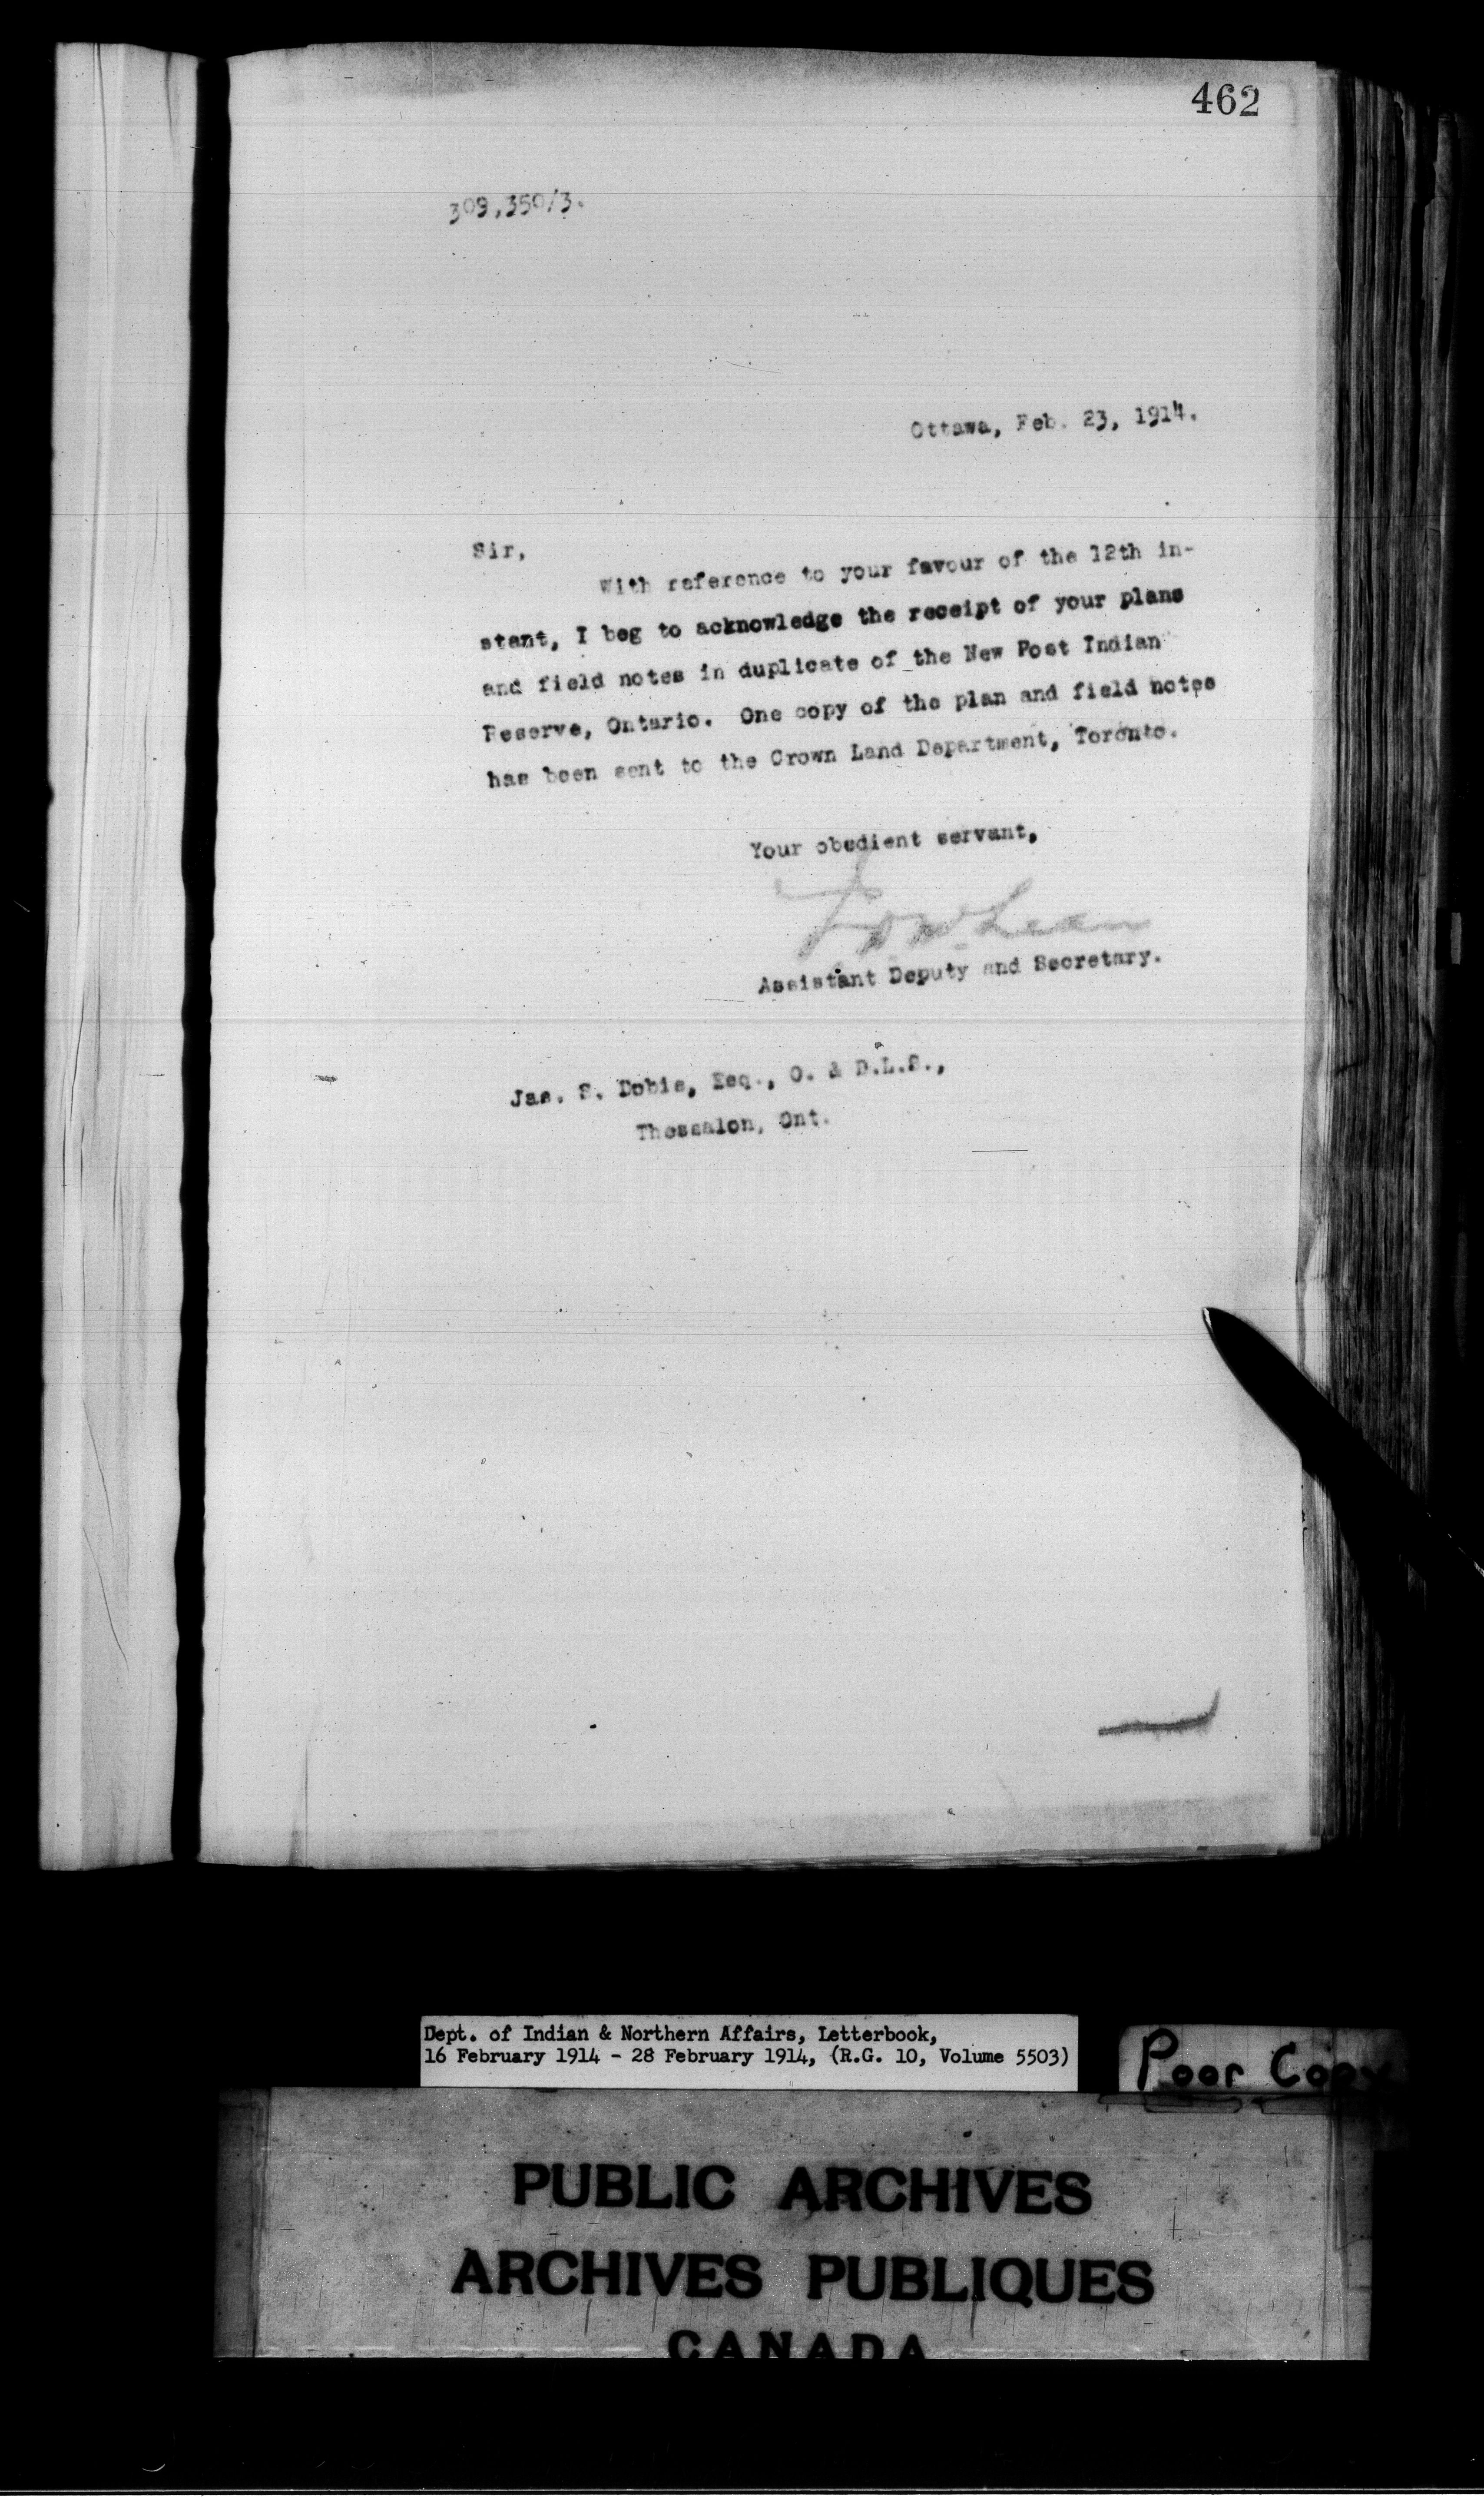 462
309,350/3.
Ottawa, Feb. 23, 1914.
Sir,
With reference to your favour of the 12th in-
stant, I beg to acknowledge the receipt of your plans
and field notes in duplicate of the New Post Indian
Reserve, Ontario. One copy of the plan and field notes
has been sent to the Crown Land Department, Toronto.
Your obedient servant,
Assistant Deputy and Secretary.
Jas. S. Dobie, Esq., O. & D.L.S.,
Thessalon, Ont.
Dept. of Indian & Northern Affairs, Letterbook,
16 February 1914 - 28 February 1914, (R.G. 10, Volume 5503)
Poor Copy
PUBLIC ARCHIVES
ARCHIVES PUBLIQUES
CANADA